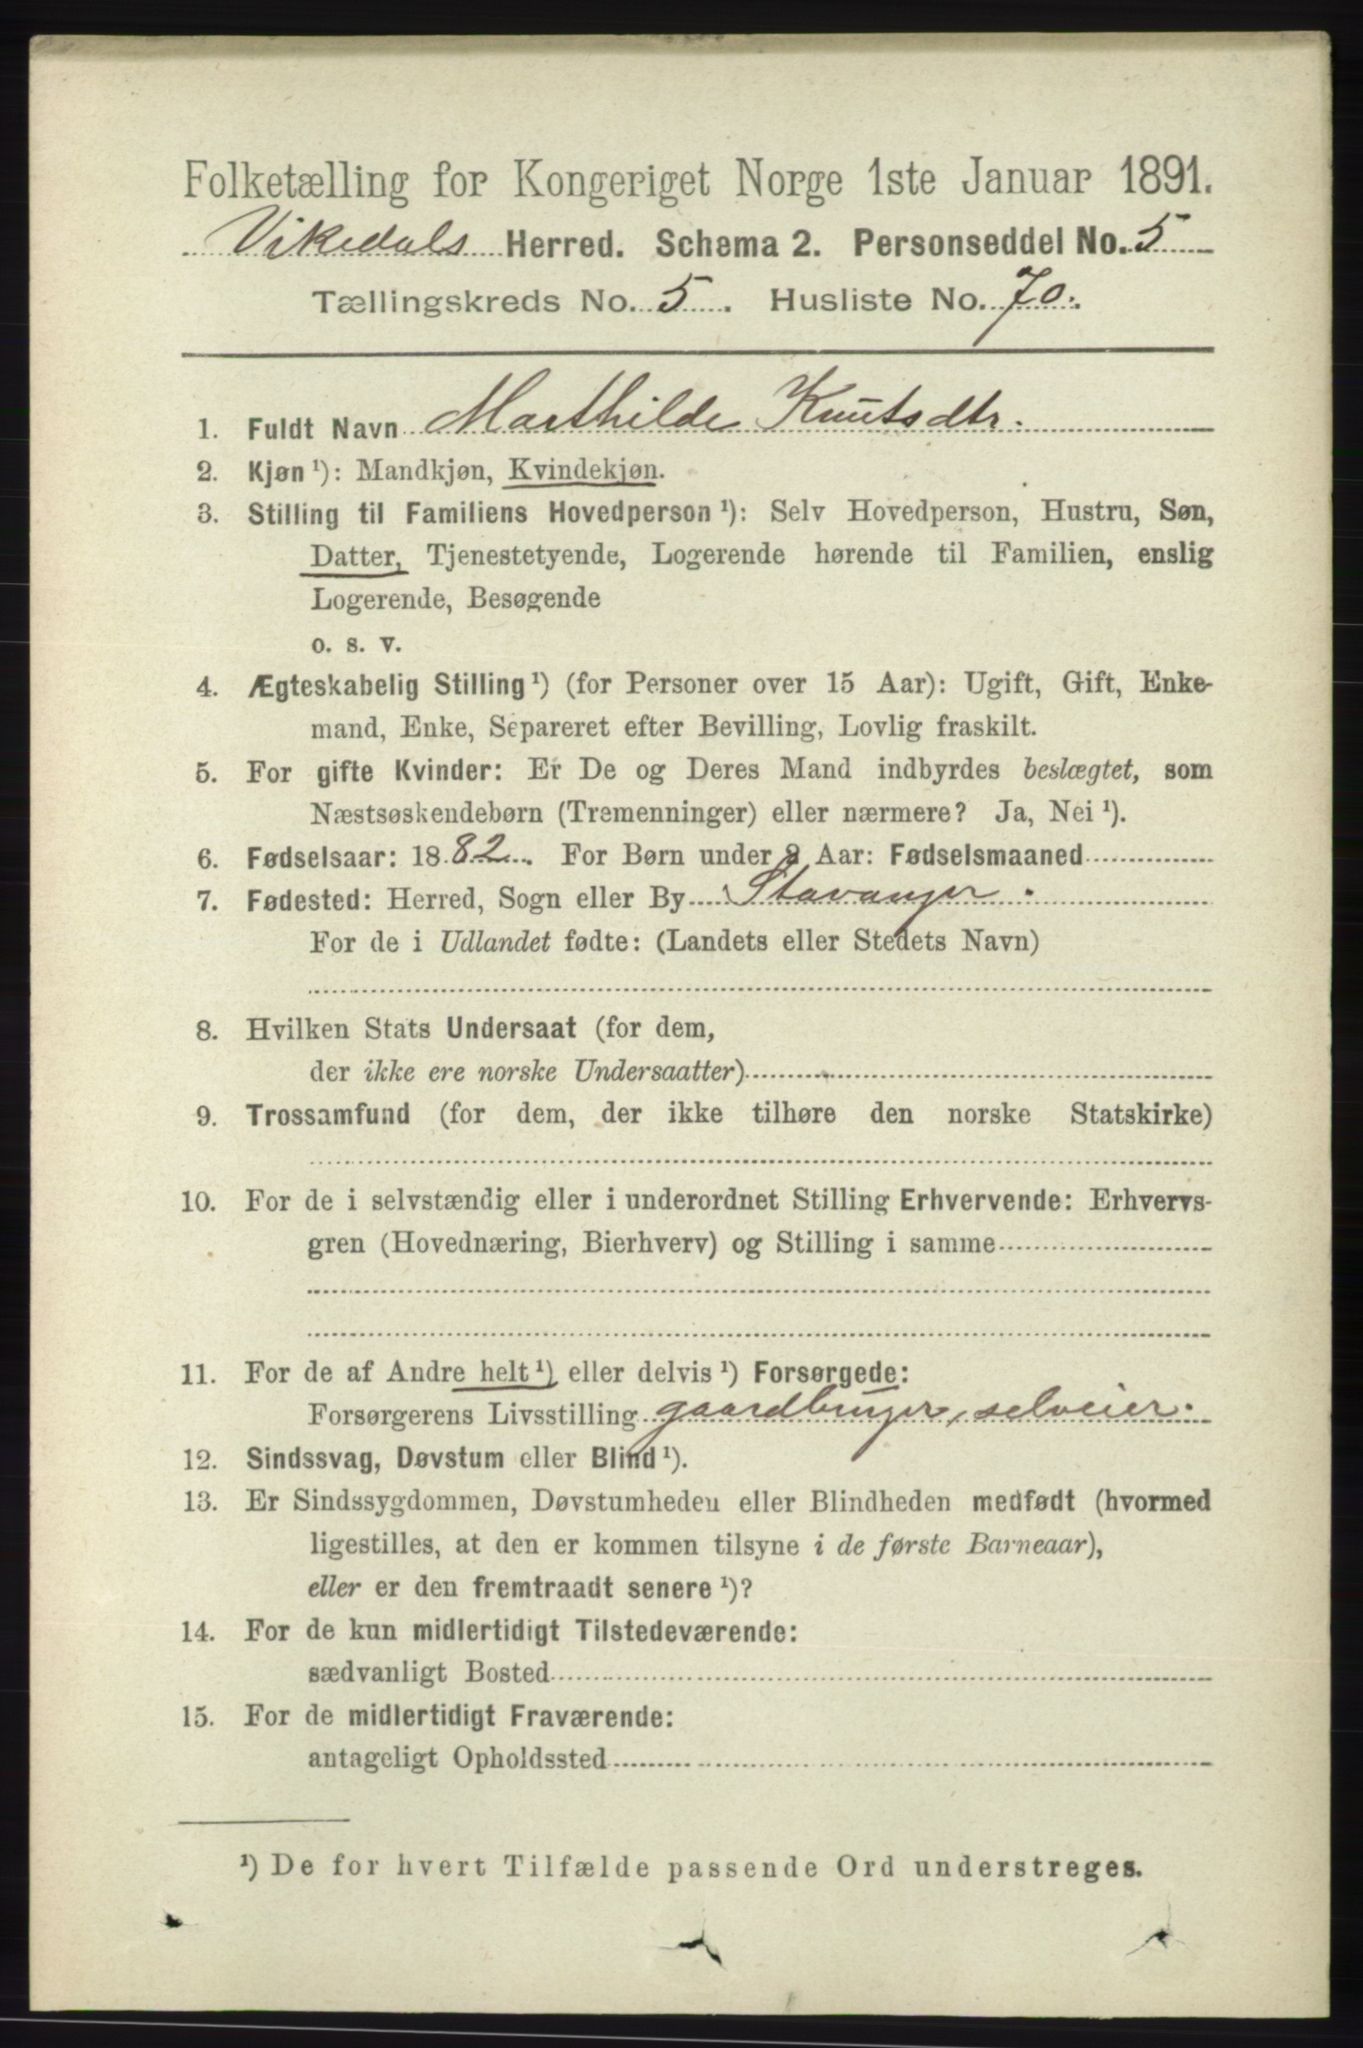 Folketælling for Kongeriget Norge 1ste Januar 1891.
Vikedals Herred. Schema 2. Personseddel No. 5
Tællingskreds No. 5. Husliste No. 70.
1. Fuldt Navn Marthilde Knutsdtr.
2. Kjøn ¹): Mandkjøn, Kvindekjøn.
3. Stilling til Familiens Hovedperson ¹): Selv Hovedperson, Hustru, Søn,
Datter, Tjenestetyende, Logerende hørende til Familien, enslig
Logerende, Besøgende
o. s. v.
4. Ægteskabelig Stilling ¹) (for Personer over 15 Aar): Ugift, Gift, Enke-
mand, Enke, Separeret efter Bevilling, Lovlig fraskilt.
5. For gifte Kvinder: Er De og Deres Mand indbyrdes beslægtet, som
Næstsøskendebørn (Tremenninger) eller nærmere? Ja, Nei ¹).
6. Fødselsaar: 1882. For Børn under 2 Aar: Fødselsmaaned
7. Fødested: Herred, Sogn eller By Stavanger.
For de i Udlandet fødte: (Landets eller Stedets Navn)
8. Hvilken Stats Undersaat (for dem,
der ikke ere norske Undersaatter)
9. Trossamfund (for dem, der ikke tilhøre den norske Statskirke)
10. For de i selvstændig eller i underordnet Stilling Erhvervende: Erhvervs-
gren (Hovednæring, Bierhverv) og Stilling i samme
11. For de af Andre helt ¹) eller delvis ¹) Forsørgede:
Forsørgerens Livsstilling gaardbruger, selveier.
12. Sindssvag, Døvstum eller Blind ¹).
13. Er Sindssygdommen, Døvstumheden eller Blindheden medfødt (hvormed
ligestilles, at den er kommen tilsyne i de første Barneaar),
eller er den fremtraadt senere ¹)?
14. For de kun midlertidigt Tilstedeværende:
sædvanligt Bosted
15. For de midlertidigt Fraværende:
antageligt Opholdssted
¹) De for hvert Tilfælde passende Ord understreges.